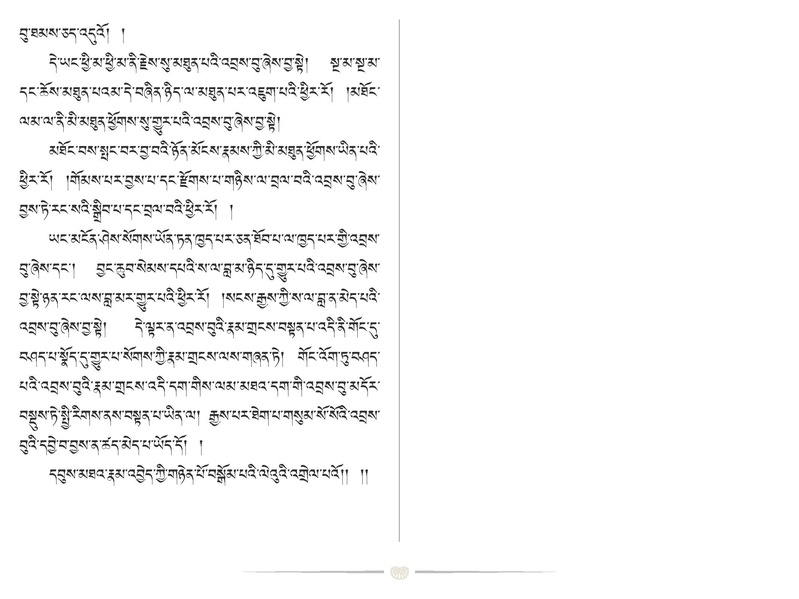 བུ་ཐམས་ཅད་འདུའོ། །
དེ་ཡང་ཕྱི་མ་ཕྱི་མ་ནི་རྗེས་སུ་མཐུན་པའི་འབྲས་བུ་ཞེས་བྱ་སྟེ། སྔ་མ་སྔ་མ་
དང་ཆོས་མཐུན་པའམ་དེ་བཞིན་ཉིད་ལ་མཐུན་པར་འཇུག་པའི་ཕྱིར་རོ། །མཐོང་
ལམ་ལ་ནི་མི་མཐུན་ཕྱོགས་སུ་གྱུར་པའི་འབྲས་བུ་ཞེས་བྱ་སྟེ།
མཐོང་བས་སྤང་བར་བྱ་བའི་ཉོན་མོངས་རྣམས་ཀྱི་མི་མཐུན་ཕྱོགས་ཡིན་པའི་
ཕྱིར་རོ། །གོམས་པར་བྱས་པ་དང་རྫོགས་པ་གཉིས་ལ་བྲལ་བའི་འབྲས་བུ་ཞེས་
བྱས་ཏེ་རང་སའི་སྒྲིབ་པ་དང་བྲལ་བའི་ཕྱིར་རོ། །
ཡང་མངོན་ཤེས་སོགས་ཡོན་ཏན་ཁྱད་པར་ཅན་ཐོབ་པ་ལ་ཁྱད་པར་གྱི་འབྲས་
བུ་ཞེས་དང་། བྱང་ཆུབ་སེམས་དཔའི་ས་ལ་བླ་མ་ཉིད་དུ་གྱུར་པའི་འབྲས་བུ་ཞེས་
བྱ་སྟེ་ཉན་རང་ལས་བླ་མར་གྱུར་པའི་ཕྱིར་རོ། །སངས་རྒྱས་ཀྱི་ས་ལ་བླ་ན་མེད་པའི་
འབྲས་བུ་ཞེས་བྱ་སྟེ། དེ་ལྟར་ན་འབྲས་བུའི་རྣམ་གྲངས་བསྟན་པ་འདི་ནི་གོང་དུ་
བཤད་པ་སྣོད་དུ་གྱུར་པ་སོགས་ཀྱི་རྣམ་གྲངས་ལས་གཞན་ཏེ། གོང་འོག་ཏུ་བཤད་
པའི་འབྲས་བུའི་རྣམ་གྲངས་འདི་དག་གིས་ལམ་མཐའ་དག་གི་འབྲས་བུ་མདོར་
བསྡུས་ཏེ་སྤྱི་རིགས་ནས་བསྟན་པ་ཡིན་ལ། རྒྱས་པར་ཐེག་པ་གསུམ་སོ་སོའི་འབྲས་
བུའི་དབྱེ་བ་བྱས་ན་ཚད་མེད་པ་ཡོད་དོ། །
དབུས་མཐའ་རྣམ་འབྱེད་ཀྱི་གཉེན་པོ་བསྒོམ་པའི་ལེའུའི་འགྲེལ་པའོ།། །།